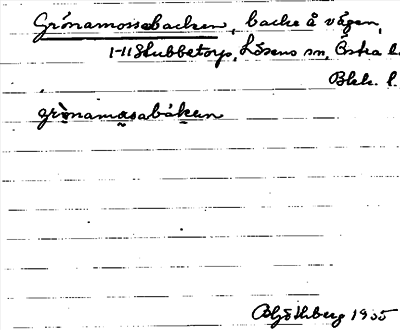 Grönamossebacken, backe å vägen,
1-11 Stubbetorp, Lösens sn, Östra h.
Blek. l.
grònamåsabáken
Bj. Göthberg 1935